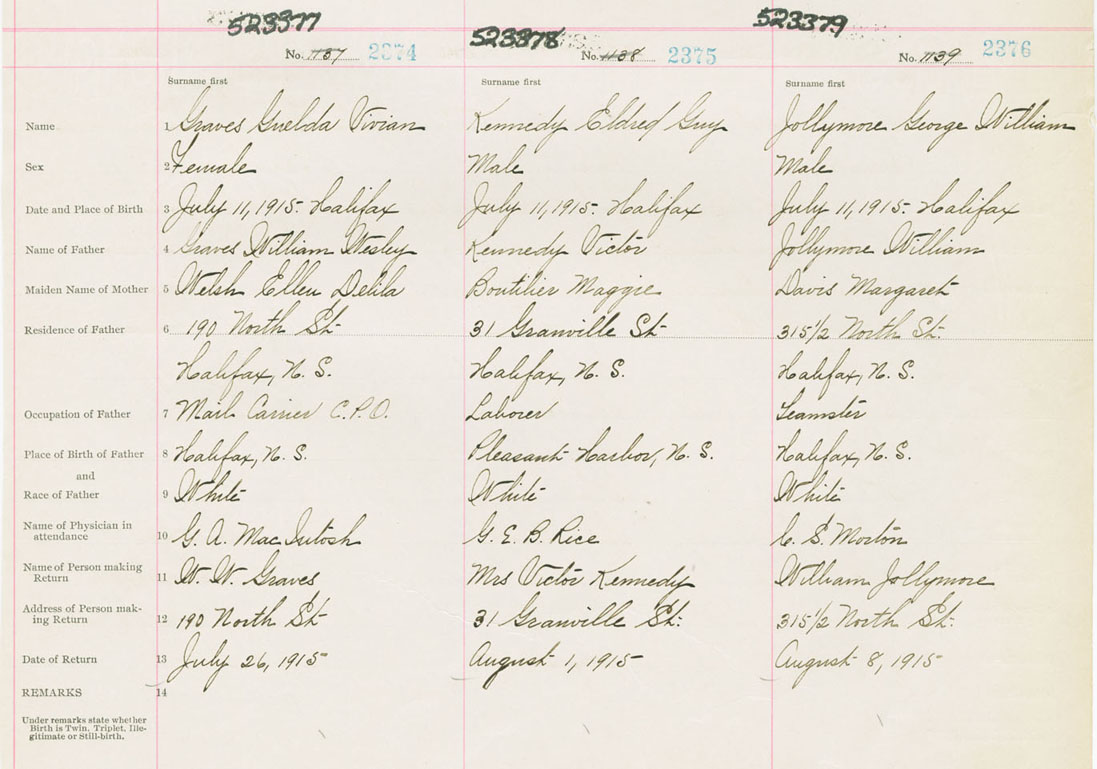 523377 523378 523379
No. 1137 2374 No. 1138 2375 No. 1139 2376
Surname first Surname first Surname first
Name 1 Graves Guelda Vivian Kennedy Eldred Guy Jollymore George William
Sex 2 Female Male Male
Date and Place of Birth 3 July 11, 1915. Halifax July 11, 1915. Halifax July 11, 1915. Halifax
Name of Father 4 Graves William Wesley Kennedy Victor Jollymore William
Maiden Name of Mother 5 Welsh Ellen Delila Boutilier Maggie Davis Margaret
Residence of Father 6 190 North St. 31 Granville St. 315 1/2 North St.
Halifax, N. S. Halifax, N. S. Halifax, N. S.
Occupation of Father 7 Mail Carrier C.P.O. Laborer Teamster
Place of Birth of Father 8 Halifax, N. S. Pleasant Harbor, N. S. Halifax, N. S.
and
Race of Father 9 White White White
Name of Physician in
attendance 10 G. A. MacIntosh G. E. B. Rice C. S. Morton
Name of Person making
Return 11 W. W. Graves Mrs Victor Kennedy William Jollymore
Address of Person mak-
ing Return 12 190 North St. 31 Granville St. 315 1/2 North St.
Date of Return 13 July 26, 1915 August 1, 1915 August 8, 1915
REMARKS 14
Under remarks state whether
Birth is Twin, Triplet, Ille-
gitimate or Still-birth.